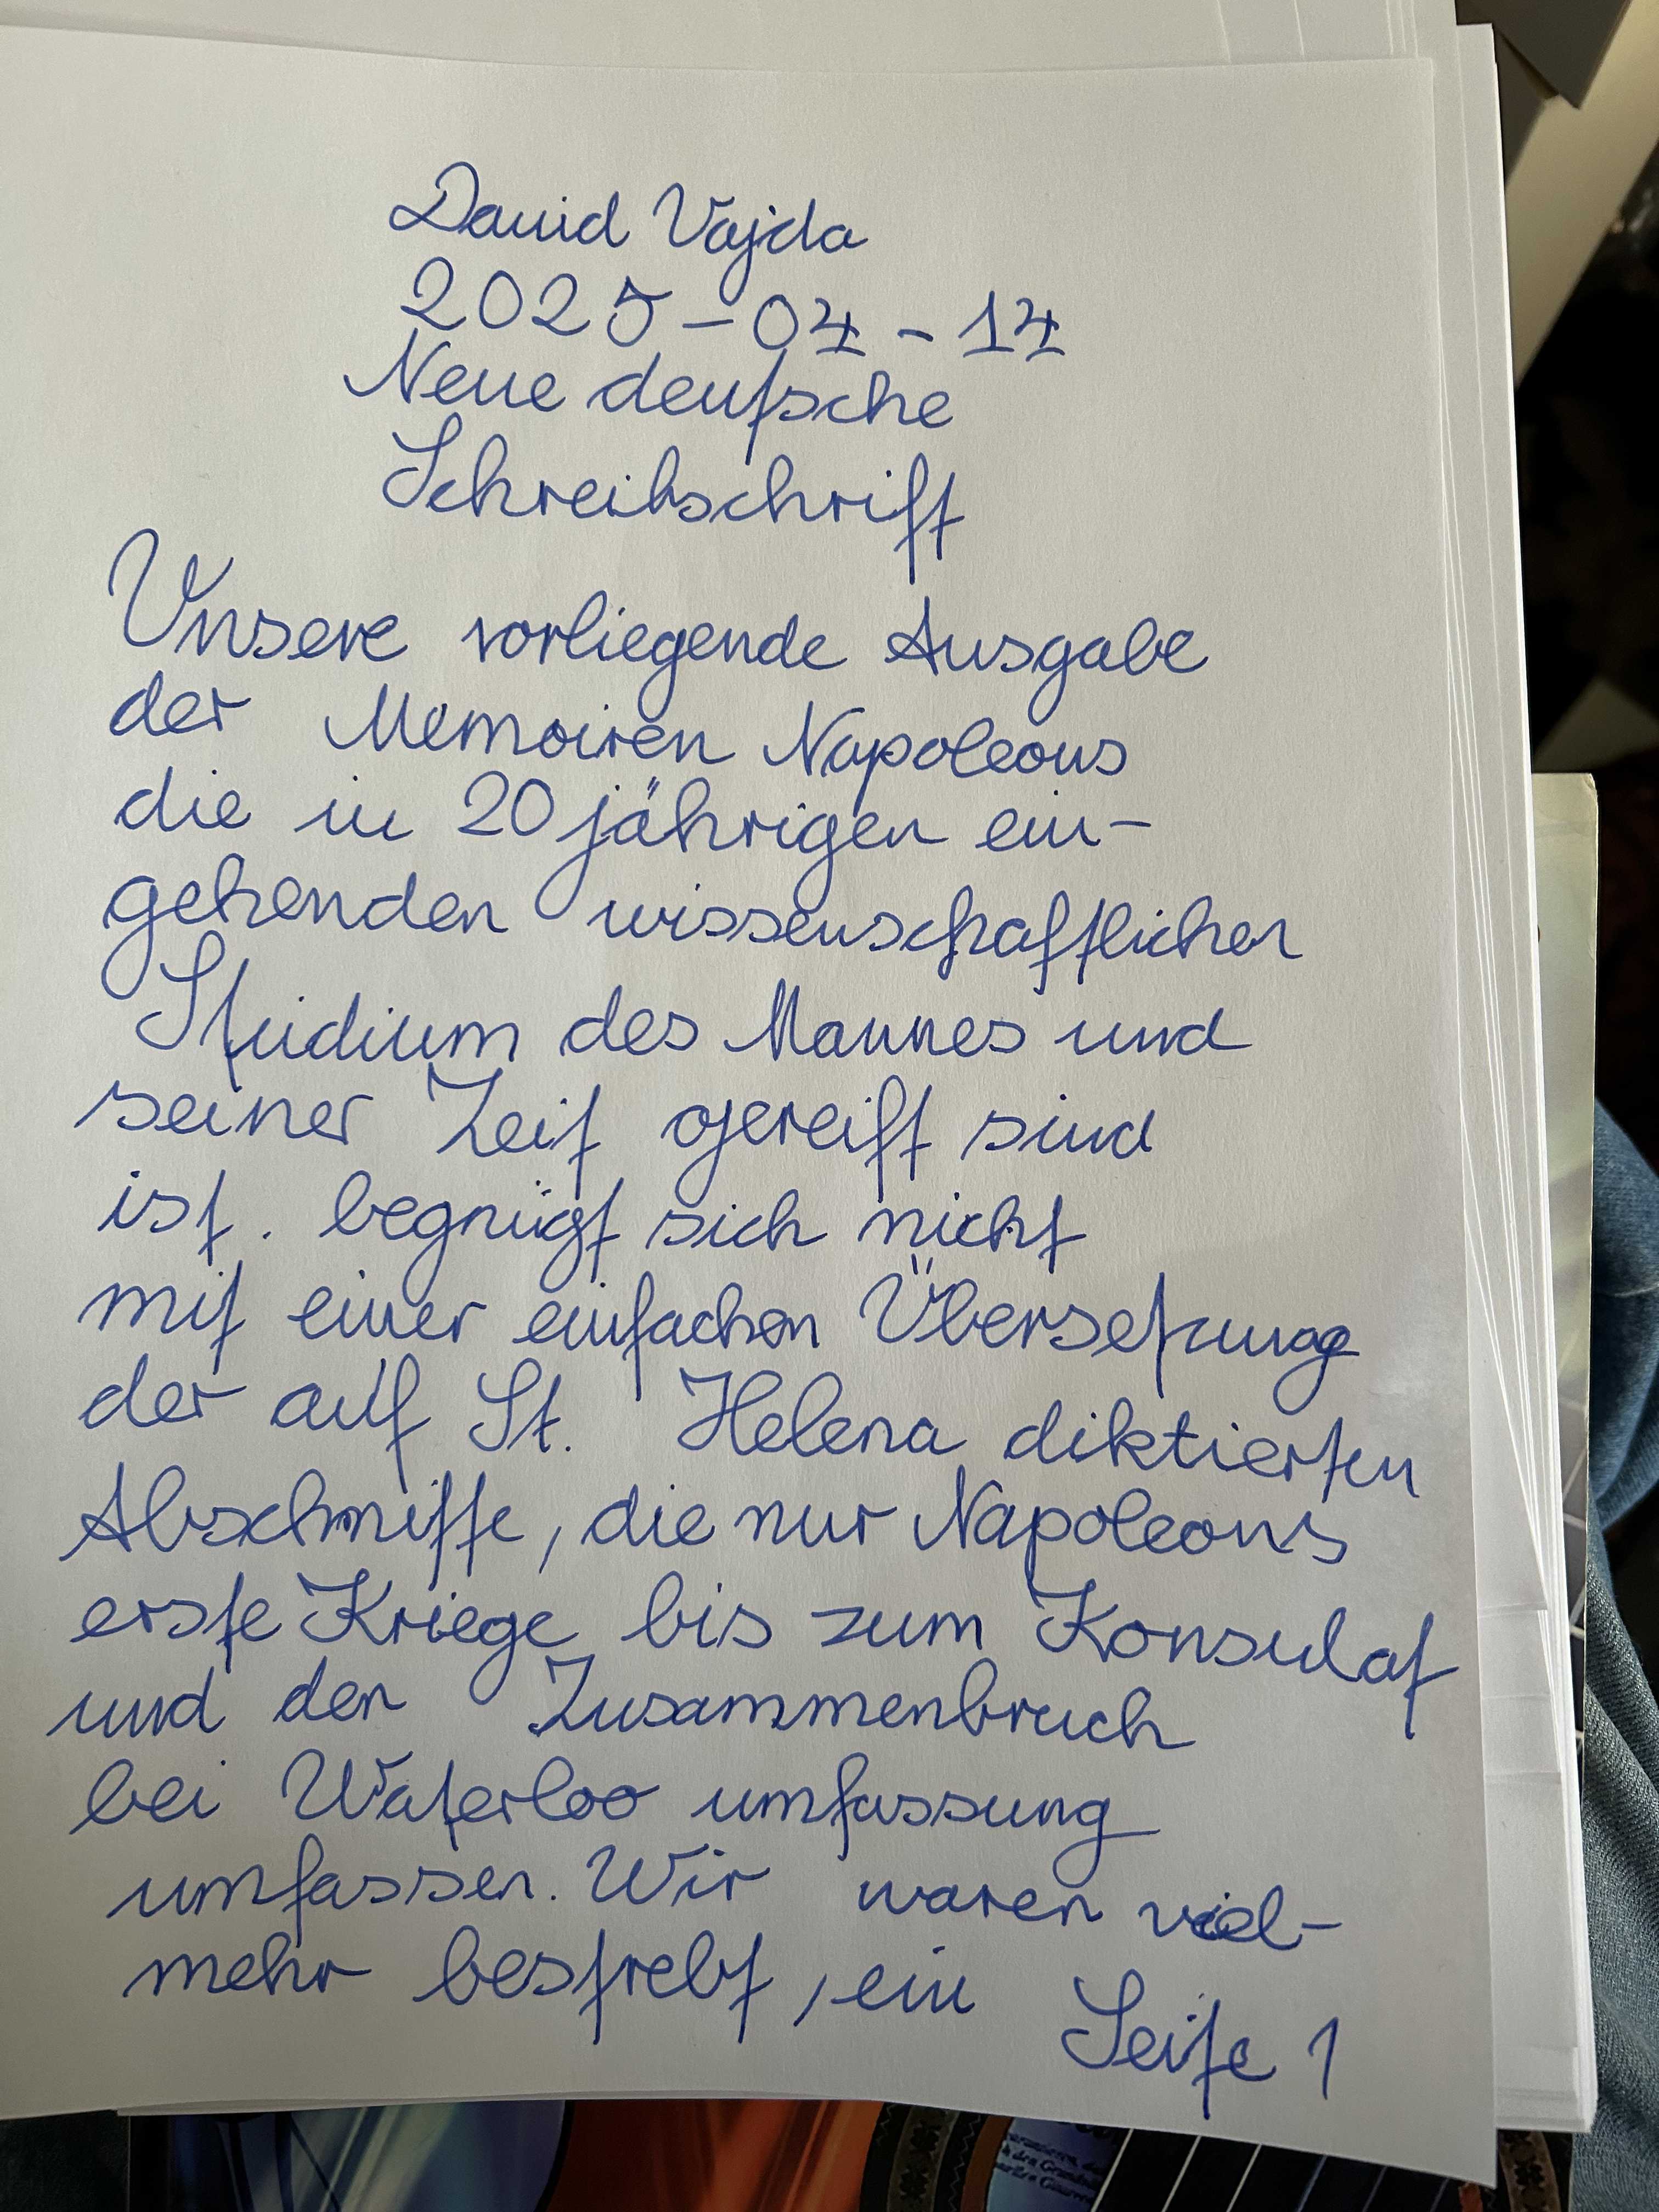 David Vajda
2025-04-14
Neue deutsche
Schreibschrift
Unsere vorliegende Ausgabe
der Memoiren Napoleons
die in 20 jährigen ein-
gehenden wissenschaftlichen
Studium des Mannes und
seiner Zeit gereift sind
ist. begnügt sich nicht
mit einer einfachen Übersetzung
der auf St. Helena diktierten
Abschnitte, die nur Napoleons
erste Kriege bis zum Konsulat
und den Zusammenbruch
bei Waterloo umfassung
umfassen. Wir waren viel-
mehr bestrebt, ein
Seite 1